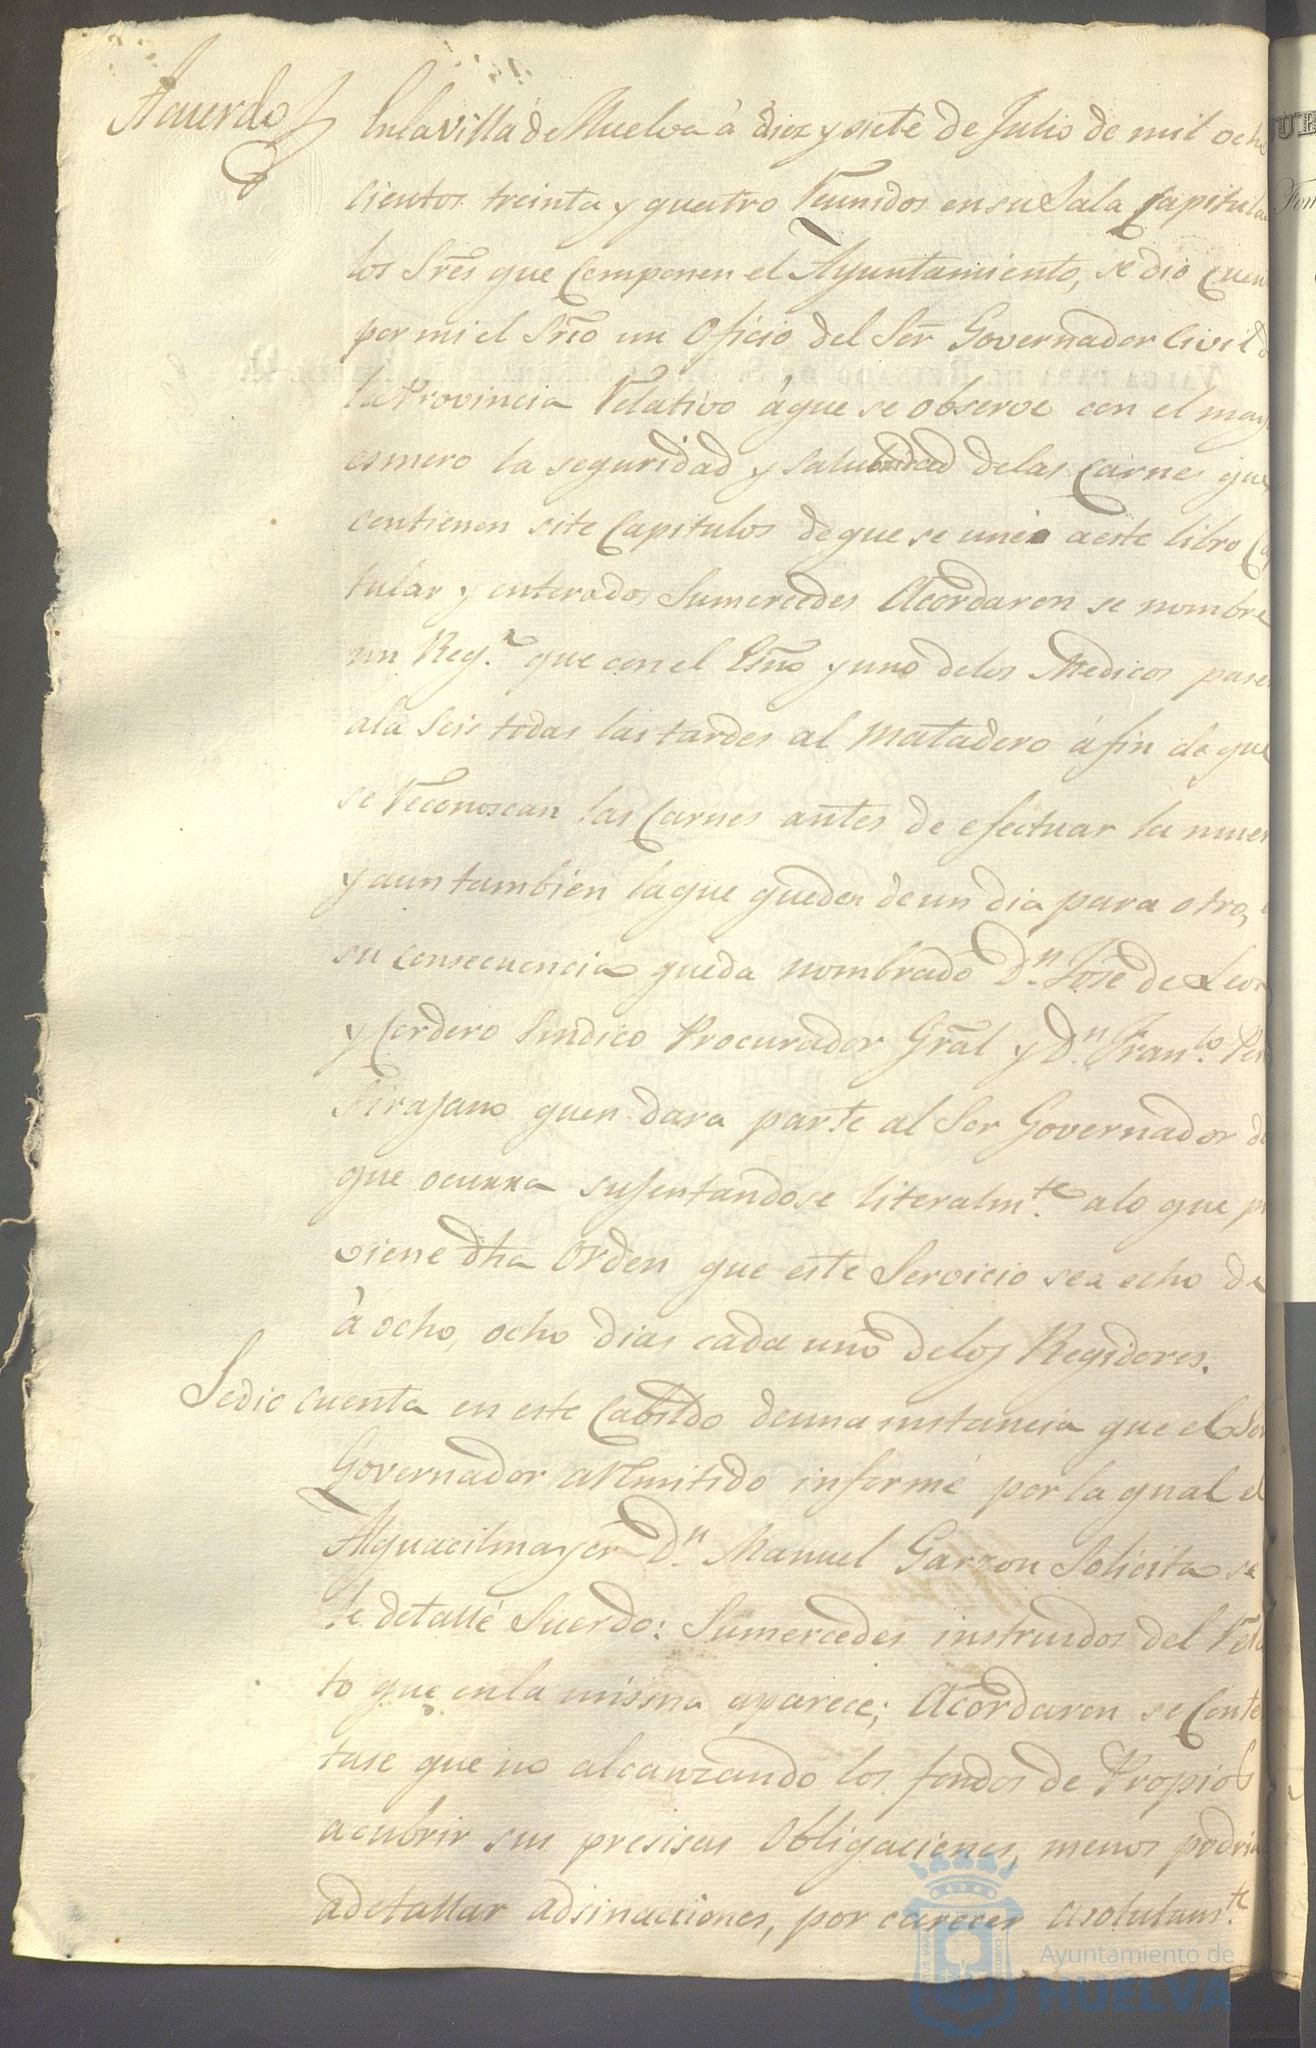 Acuerdo
En la villa de Huelva à diez y siete de Julio de mil ocho
cientos treinta y quatro Reunidos en su Sala Capitula
los Sres que Componen el Ayuntamiento, se dio cuen
por mi el Srio un Oficio del Sor Governador Civil d
la Provincia Relativo à que se observe con el may
esmero la seguridad y salubridad de las Carnes que
contienen site Capitulos de que se unio a este libro Ca
tular y enterados Sumercedes Acordaron se nombre
un Reg.r que con el Esno y uno de los Medicos pase
ala seis todas las tardes al matadero á fin de que
se Reconoscan las Carnes antes de efectuar la muer
y aun tambien la que queden de un dia para otro,
su consecuencia queda nombrado D.n José de Leon
y Cordero Sindico Procurador Gral y D.n Fran.co Per
Tirajano quen dara parte al Sor Governador d
que ocurra sugentandose literalm.te alo que p
viene dha Orden que este Servicio sea echo de
à ocho, ocho dias cada uno de los Regidores.
Se dio cuenta en este Cabildo de una instancia que el Sor
Governador a Remitido informé por la qual el
Alguacil mayor D.n Manuel Garzon Solicita se
le detallé Sueldo: Sumercedes instruidos del Rela
to que en la misma aparece; Acordaron se Conte
tase que no alcanzando los fondos de Propios
a cubrir sus presisas Obligaciones, menos podria
a detallar adsinaciones, por carecer asolutam.te
Ayuntamiento de
HUELVA